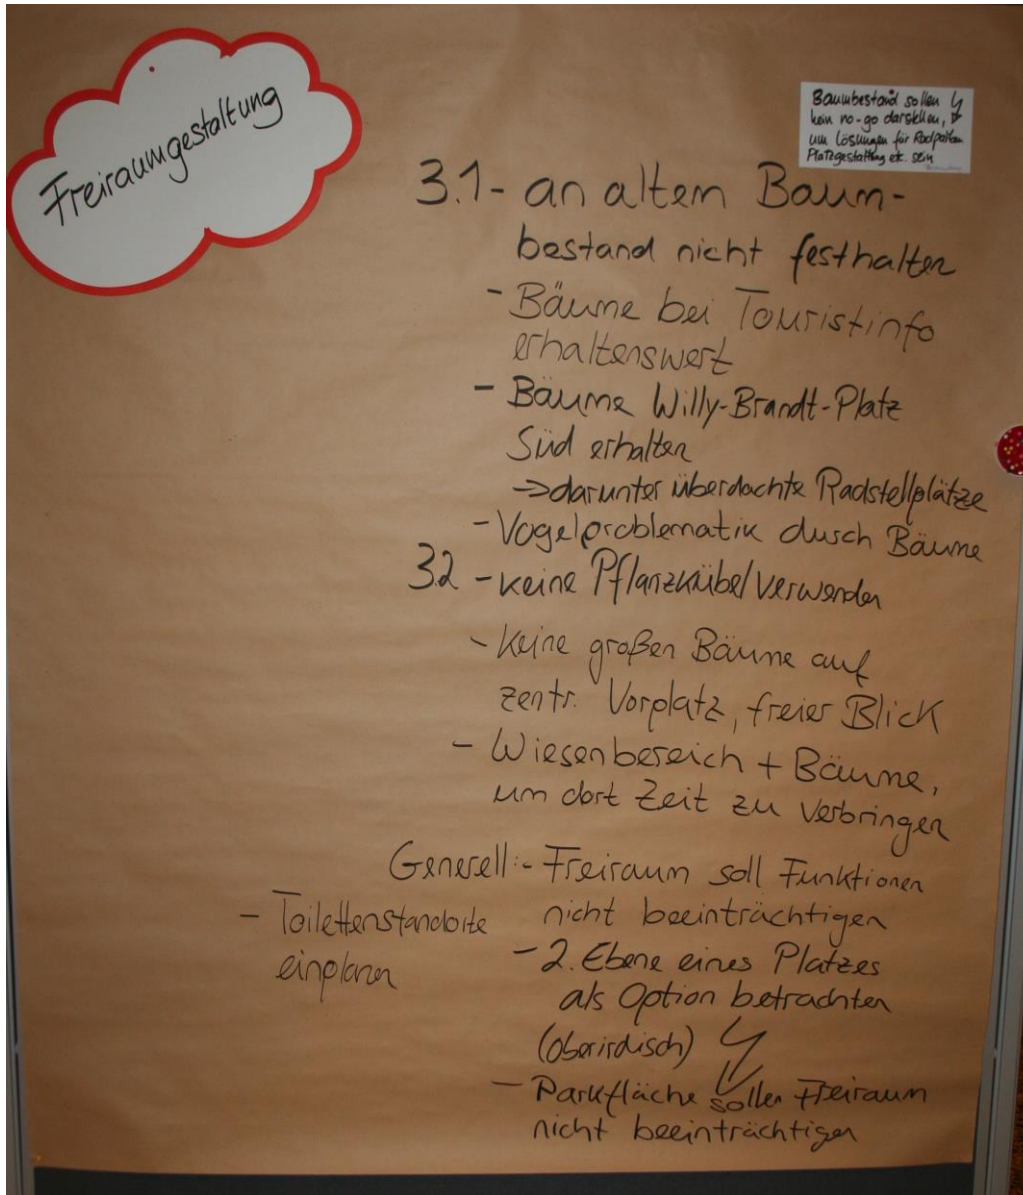 Freiraumgestaltung
Baumbestand sollen
kein no-go darstellen,
um Lösungen für Radparken
Platzgestaltung etc. sein
3.1 - an altem Baum-
bestand nicht festhalten
- Bäume bei Touristinfo
erhaltenswert
- Bäume Willy-Brandt-Platz
Süd erhalten
→ darunter überdachte Radstellplätze
- Vogelproblematik durch Bäume
3.2 - keine Pflanzkübel verwenden
- Keine großen Bäume auf
zentr. Vorplatz, freier Blick
- Wiesenbereich + Bäume,
um dort Zeit zu verbringen
Generell: - Freiraum soll Funktionen
nicht beeinträchtigen
- Toilettenstandorte
einplanen
- 2. Ebene eines Platzes
als Option betrachten
(oberirdisch)
- Parkfläche sollen Freiraum
nicht beeinträchtigen